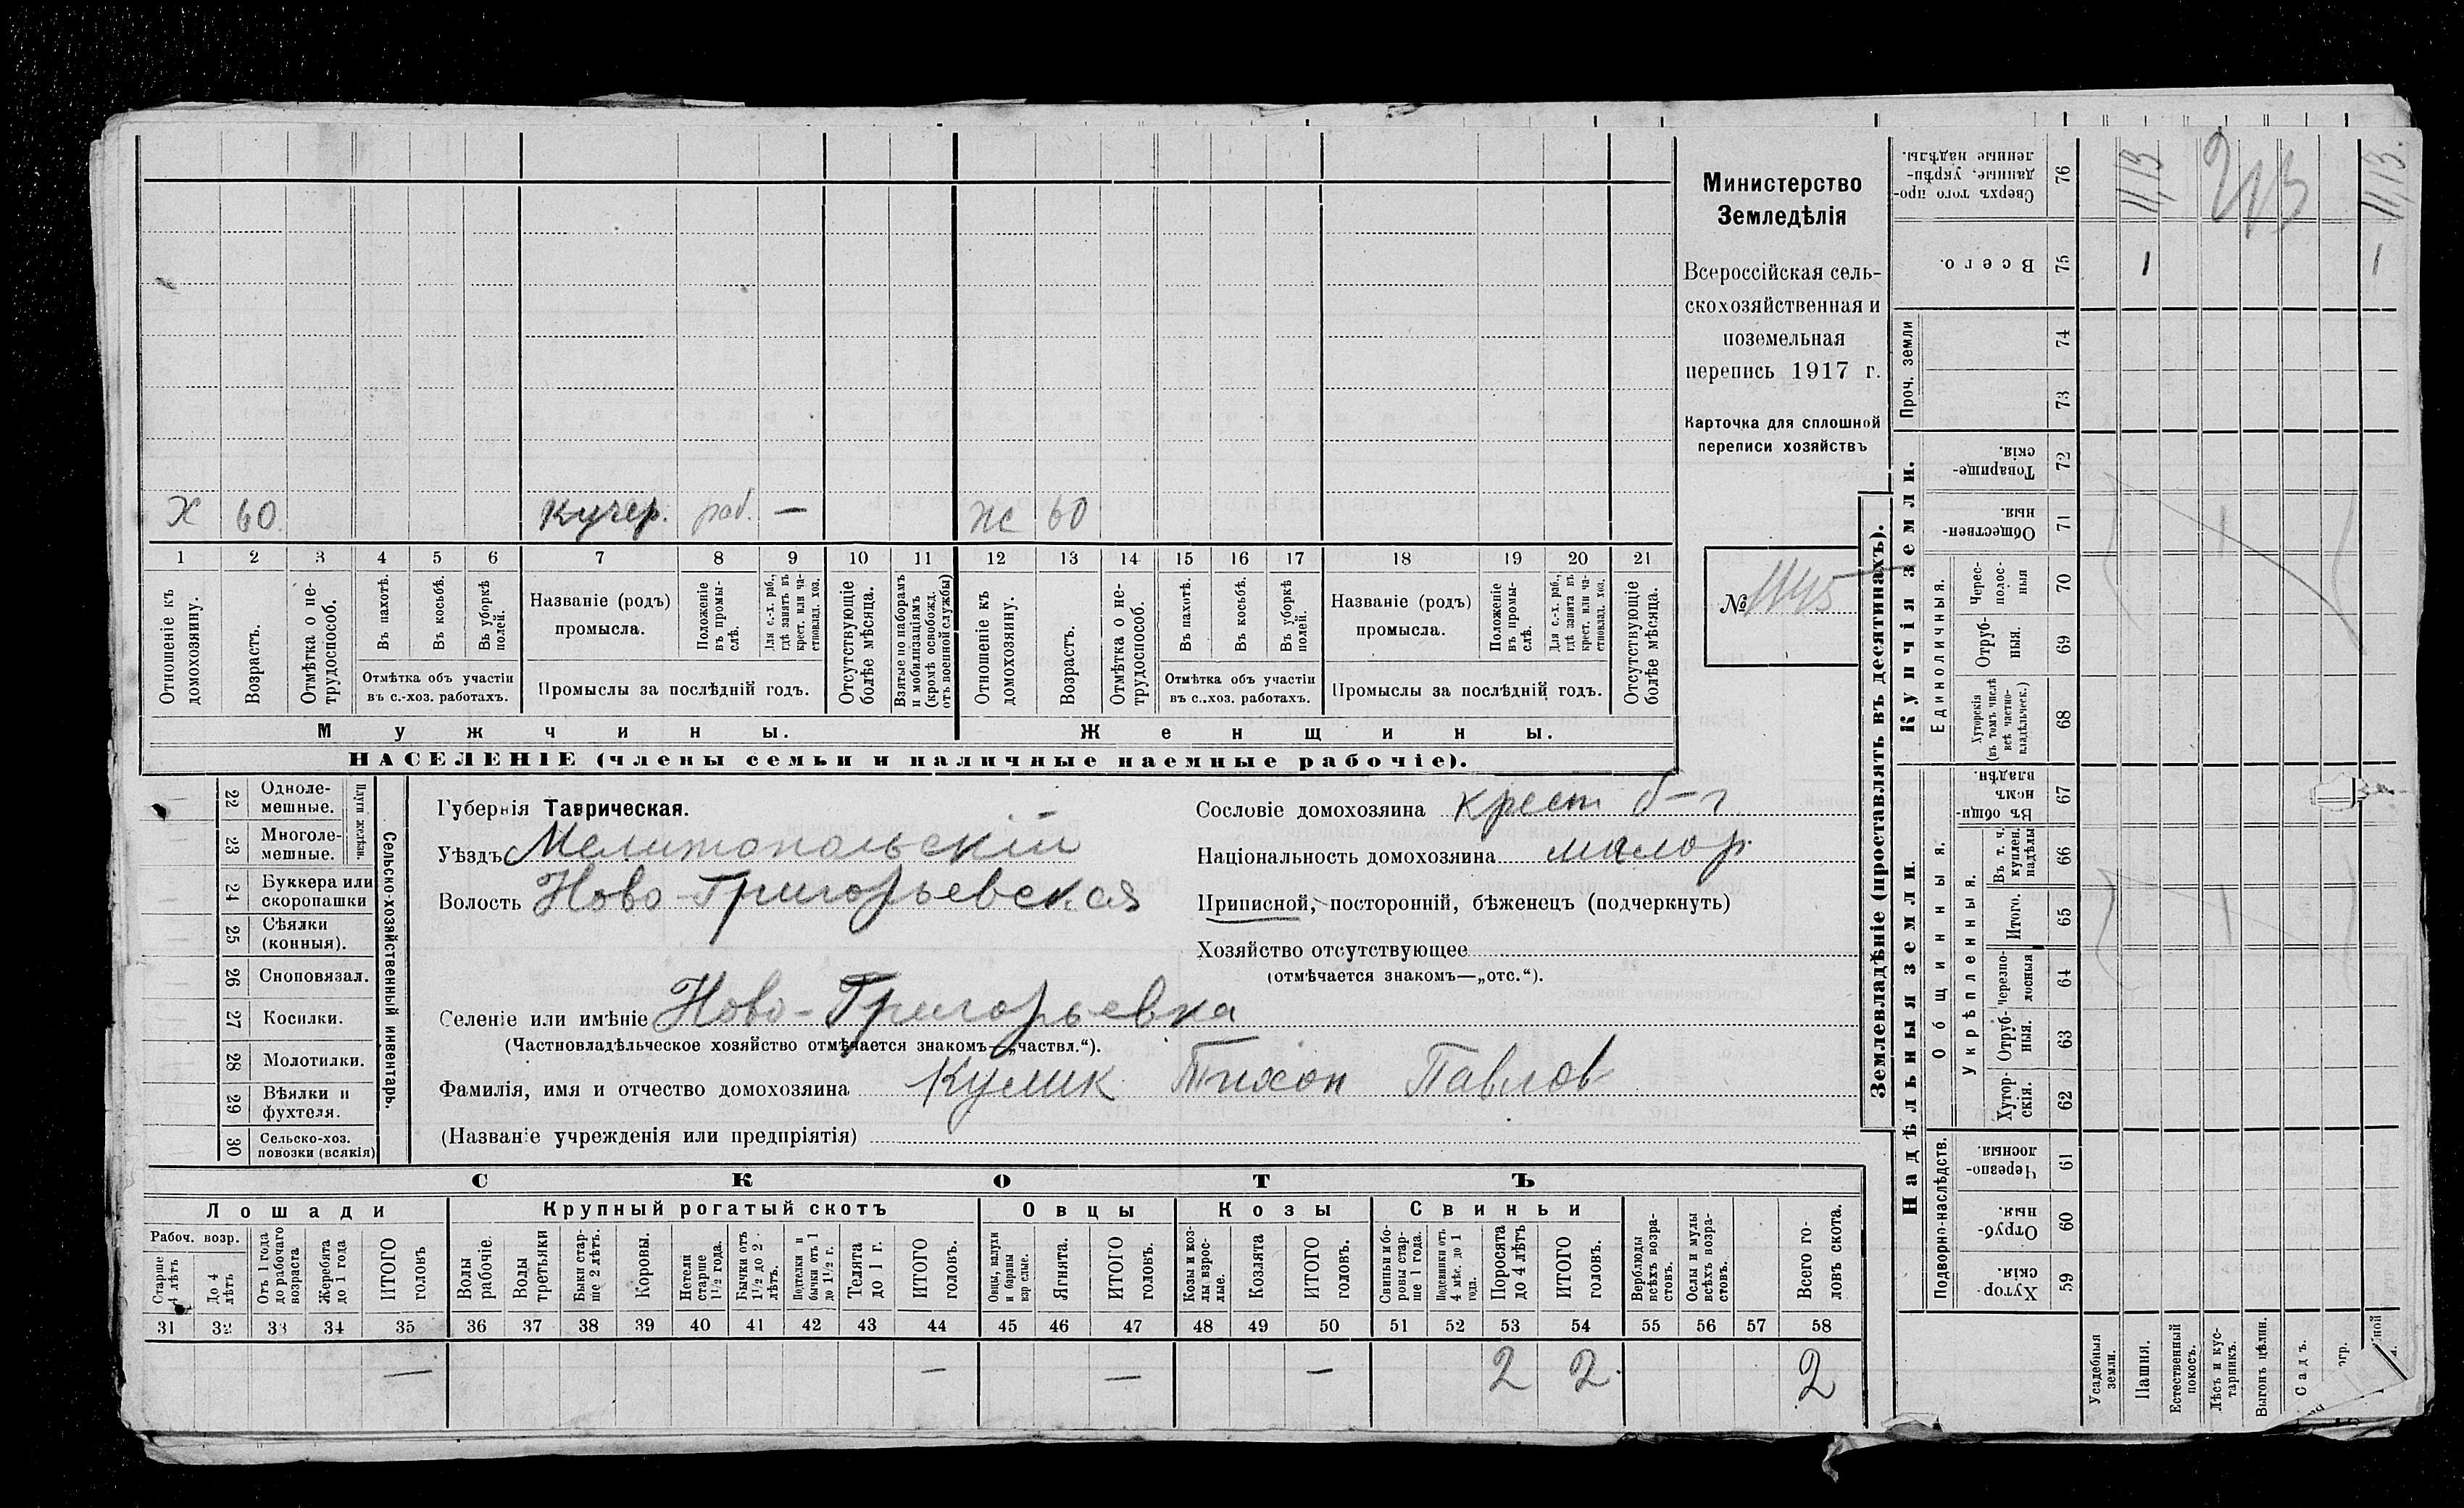 Министерство
Земледѣлія
Всероссійская сель-
скохозяйственная и
поземельная
перепись 1917 г.
Карточка для сплошной
переписи хозяйствъ
№
Х 60. Кучер. раб. — Ж 60
1 2 3 4 5 6 7 8 9 10 11 12 13 14 15 16 17 18 19 20 21
Отношеніе къ домохозяину.
Возрастъ.
Отмѣтка о не-трудоспособ.
Въ пахотѣ.
Въ косьбѣ.
Въ уборкѣ полей.
Отмѣтка объ участіи
въ с.-хоз. работахъ.
Названіе (родъ)
промысла.
Положеніе въ промы-слѣ.
Для с.-х. раб., гдѣ занятъ въ крест. или ча-стновлад. хоз.
Промыслы за послѣдній годъ.
Отсутствующіе болѣе мѣсяца.
Взятые по наборамъ и мобилизаціямъ (кромѣ освобожд. отъ военной службы)
Отношеніе къ домохозяину.
Возрастъ.
Отмѣтка о не-трудоспособ.
Въ пахотѣ.
Въ косьбѣ.
Въ уборкѣ полей.
Отмѣтка объ участіи
въ с..хоз. работахъ.
Названіе (родъ)
промысла.
Положеніе въ промы-слѣ.
Для с.-х. раб., гдѣ занята въ крест. или ча-стновлад. хоз.
Промыслы за послѣдній годъ.
Отсутствующіе болѣе мѣсяца.
Мужчины. Женщины.
НАСЕЛЕНІЕ (члены семьи и наличные наемные рабочіе).
22 Одноле-мешные.
23 Многоле-мешные.
Плуги желѣзн.
24 Буккера или скоропашки
25 Сѣялки (конныя).
26 Сноповязал.
27 Косилки.
28 Молотилки.
29 Вѣялки и фухтеля.
30 Сельско-хоз. повозки (всякія)
Сельско-хозяйственный инвентарь.
Губернія Таврическая.
Уѣздъ Мелитопольскій
Волость Ново-Григорьевская
Сословіе домохозяина крест б-г
Національность домохозяина малор.
Приписной, посторонній, бѣженецъ (подчеркнуть)
Хозяйство отсутствующее
(отмѣчается знакомъ—„отс.“).
Селеніе или имѣніе Ново-Григорьевка
(Частновладѣльческое хозяйство отмѣчается знакомъ—„частвл.“).
Фамилія, имя и отчество домохозяина Кулик Тихон Павлов
(Названіе учрежденія или предпріятія)
СКОТЪ
Лошади Крупный рогатый скотъ Овцы Козы Свиньи
Рабоч. возр.
Старше 4 лѣтъ
До 4 лѣтъ
Отъ 1 года до рабочаго возраста
Жеребята до 1 года
ИТОГО головъ
Волы рабочіе.
Волы третьяки
Быки стар-ше 2 лѣтъ.
Коровы.
Нетели старше 1½ года.
Бычки отъ 1½ до 2 лѣтъ.
Подтелки и бычки отъ 1 до 1½ г.
Телята до 1 г.
ИТОГО головъ.
Овцы, валухи и бараны взрослые.
Ягнята.
ИТОГО головъ.
Козы и коз-лы взрос-лые.
Козлята
ИТОГО головъ.
Свиньи и бо-ровы стар-ше 1 года.
Подсвинки отъ 4 мѣс. до 1 года.
Поросята до 4 лѣтъ
ИТОГО головъ.
Верблюды всѣхъ возра-стовъ.
Ослы и мулы всѣхъ возра-стовъ.
Всего го-ловъ скота.
31 32 33 34 35 36 37 38 39 40 41 42 43 44 45 46 47 48 49 50 51 52 53 54 55 56 57 58
— — — — 2 2. 2
Землевладѣніе (проставлять въ десятинахъ).
Сверхъ того про-данные, укрѣп-ленные надѣлы. 76 11,13 11,13.
Всего. 75 1 1
Проч. земли 74
73
Купчія земли.
Товарище-скія. 72
Обществен-ныя. 71
Единоличныя.
Черес-полос-ныя 70
Отруб-ныя. 69
Хуторскія (въ томъ числѣ всѣ частно-владѣльческ.) 68
Надѣльныя земли.
Общинныя.
Въ общин-номъ владѣн. 67
Укрѣпленныя.
Въ т. ч. куплен. надѣлы 66
Итого. 65
Черезпо-лосныя 64
Отруб-ныя. 63
Хутор-скія. 62
Подворно-наслѣдств.
Черезпо-лосныя. 61
Отруб-ныя. 60
Хутор-скія. 59
Усадебныя земли.
Пашня.
Естественный покосъ.
Лѣсъ и кус-тарникъ.
Выгонъ цѣлин.
Садъ.